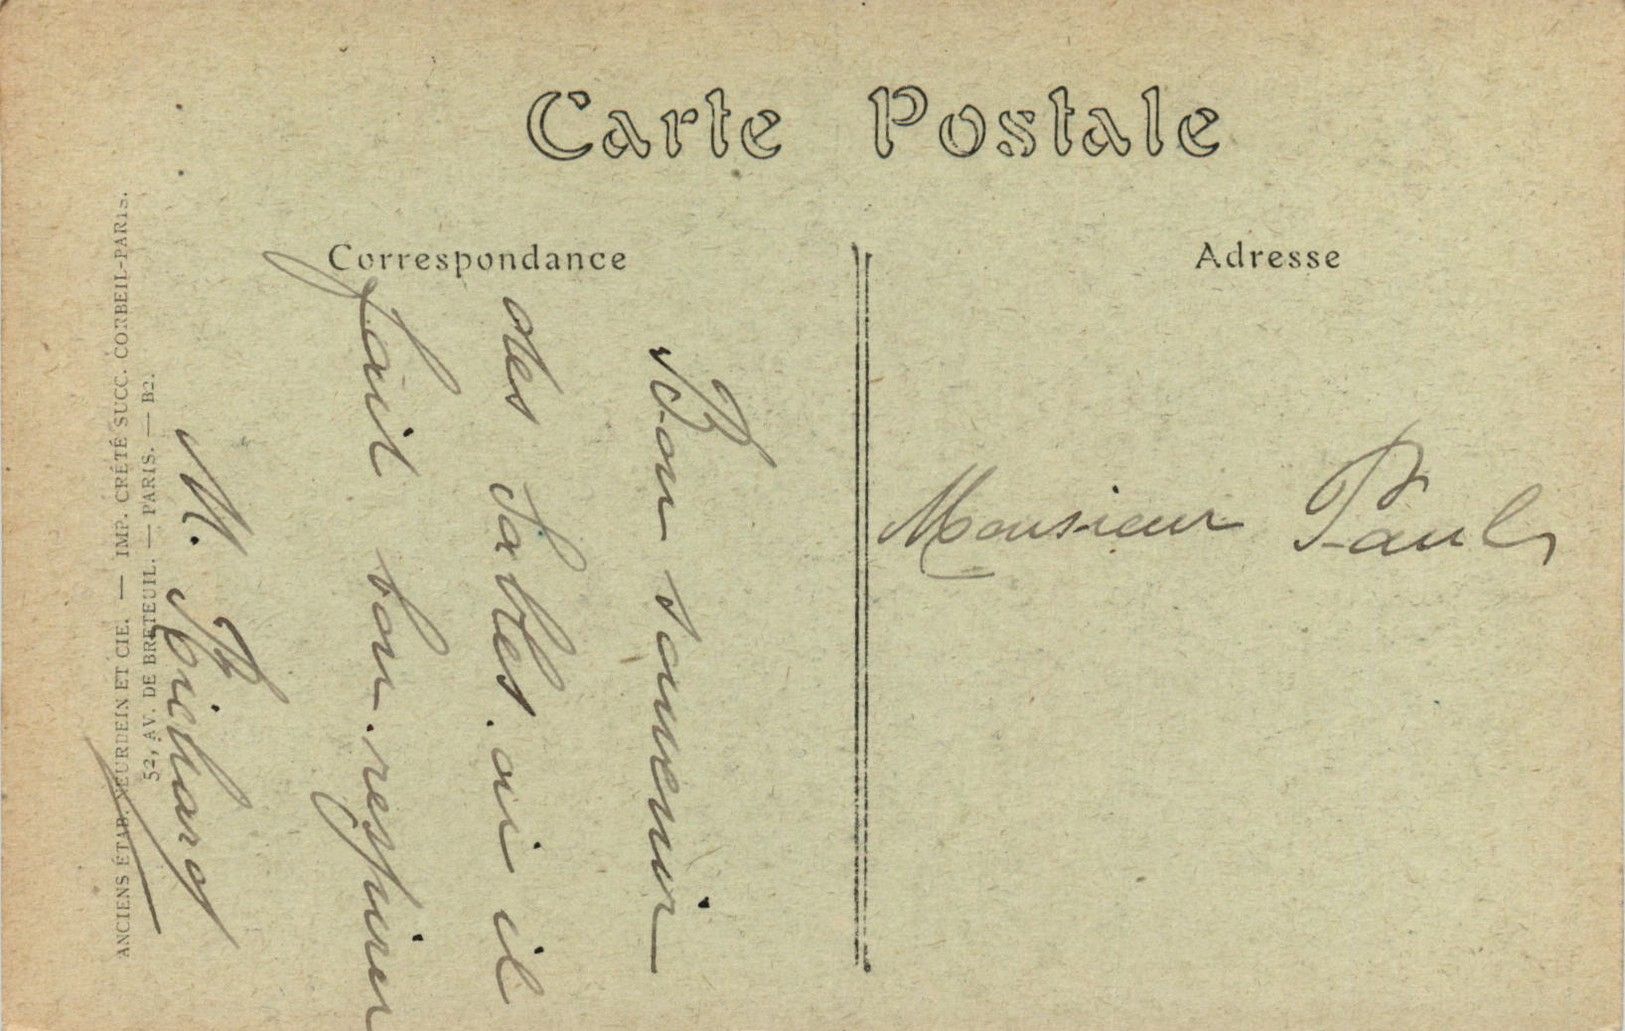 Carte Postale
Correspondance
Adresse
Bon souvenir
des Sables. où il
fait bon. respirer
M. Richard
Monsieur Paul
ANCIENS ÉTAB. NEURDEIN ET CIE. — IMP. CRÉTÉ SUCC. CORBEIL-PARIS.
52, AV. DE BRETEUIL. — PARIS. — B2.